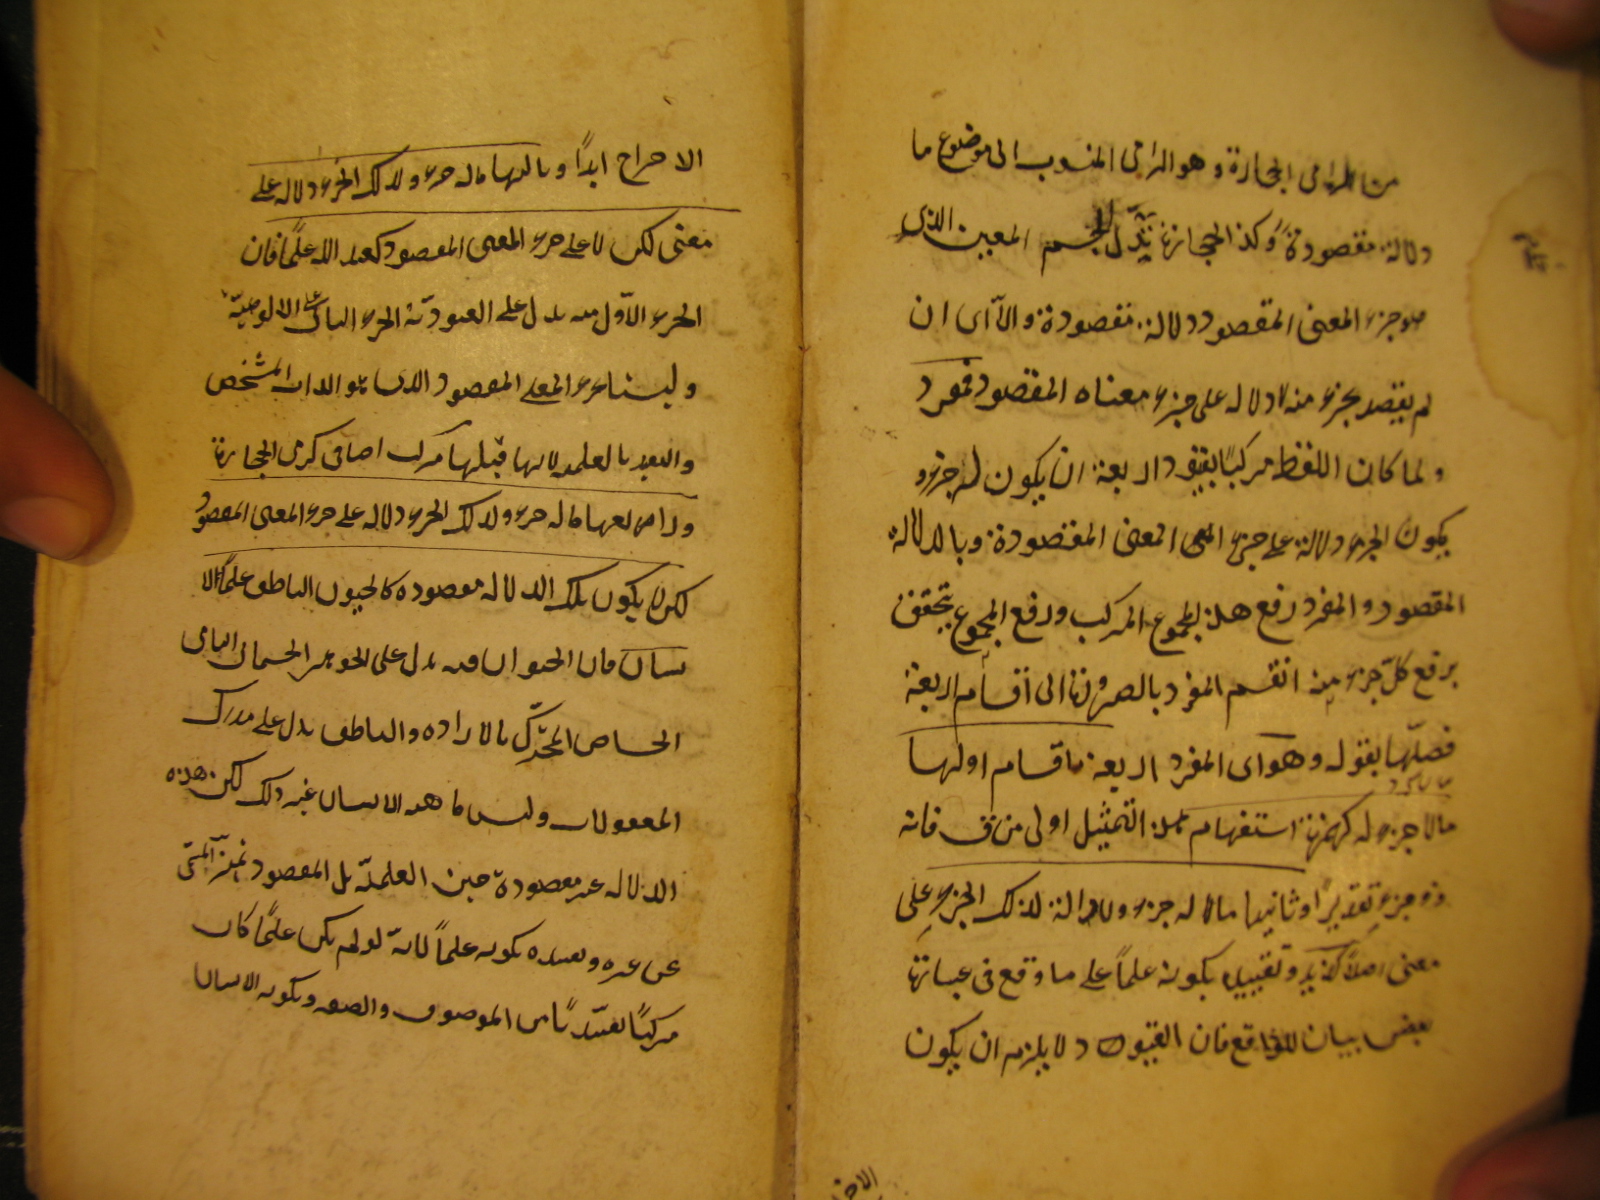 من الرامى الحجارة وهو الرامى المنسوب الى موضوع ما
دلالة مقصودة وكذا الحجارة تدل للجسم المعين الذى
هو جزء المعنى المقصود دلالة مقصودة والا آى ان
لم يقصد بجزء منه دلالة على جزء معناه المقصود فمفرد
ولما كان اللفظ مركبًا بقيود اربعة ان يكون له جزء و
يكون لجزء دلالة على جزء المعنى المعنى المقصودة وبالدلالة
المقصود والمفرد رفع هذا المجموع المركب ورفع المجموع يتحقق
برفع كلّ جزء منه انقسم المفرد بالضرورة الى اقسام اربعة
فصلّها بقوله وهو اى المفرد اربعة اقسام اولها
مالا جزء له كهمزة استفهام هذا التمثيل اولى من ق فانه
ذو جزء تقديرًا وثانيها ماله جزء ولا دلالة لذلك الجزء على
معنى اصلاً كزيد وتقييده بكونه علماً على ما وقع فى عبارة
بعض بيان للواقع فان القيود لا يلزم ان يكون
الاخر
الاحراج ابدًا وثالثها ماله جزء ولذلك الجزء دلالة على
معنى لكن لا على جزء المعنى المقصود كعبد الله علمًا فان
الجزء الاوّل منه يدل على العبودية الجزء الثانى على الالوهيّة
وليسا جزء المعنى المقصود الذى هو الذات المشخص
والتقييد بالعلمية لانها قبلها مركب اضافى كرامى الحجارة
ورابعها ماله جزء ولذلك الجزء دلالة على جزء المعنى المقصود
لكن لا يكون تلك الدلالة مقصودة كالحيوان الناطق علمًا للا
نسان فان الحيوان فيه يدل على الجوهر الجسمانى النامى
الحساس المتحرّك بالارادة والناطق يدل على مدرك
المعقولات وليس ماهية الانسان غير ذلك لكن هذه
الدلالة غير مقصودة حين العلميّة بل المقصود تميز المسمّى
عن غيره وتقييده بكونه علماً لانه لو لم يكن علمًا كان
مركبًا تقييديًا من الموصوف والصفة وبكونه الانسان